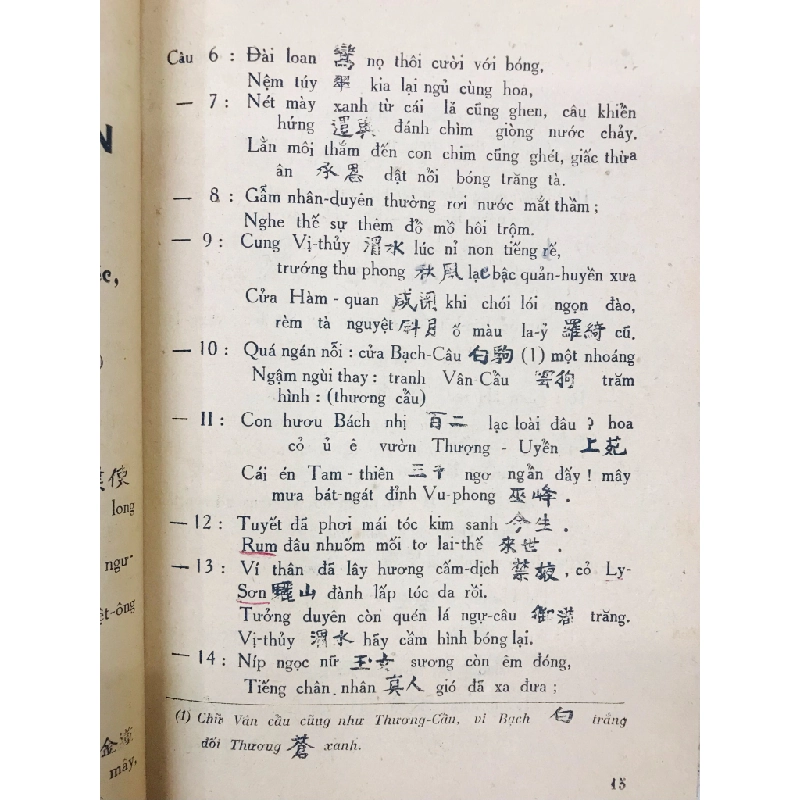 Câu 6 : Đài loan 鸞 nọ thôi cười với bóng,
Nệm túy 翠 kia lại ngủ cùng hoa,
— 7 : Nét mày xanh từ cái lá cũng ghen, câu khiển
hứng 遣興 đánh chìm giòng nước chảy.
Lằn môi thắm đến con chim cũng ghét, giấc thừa
ân 承恩 dật nồi bóng trăng tà.
— 8 : Gẫm nhân-duyên thường rơi nước mắt thầm ;
Nghe thế sự thêm đổ mồ hôi trộm.
— 9 : Cung Vị-thủy 渭水 lúc nỉ non tiếng rế,
trướng thu phong 秋風 lạc bậc quản-huyền xưa
Cửa Hàm - quan 咸関 khi chói lói ngọn đào,
rèm tà nguyệt 斜月 ố màu la-ỷ 羅綺 cũ.
— 10 : Quá ngán nỗi : cửa Bạch-Câu 白駒 (1) một nhoáng
Ngậm ngùi thay : tranh Vân-Cầu 雲狗 trăm
hình : (thương cầu)
— 11 : Con hươu Bách nhị 百二 lạc loài đâu ? hoa
cỏ ủ ê vườn Thượng - Uyển 上苑
Cái én Tam - thiên 三千 ngơ ngẩn đấy ! mây
mưa bát-ngát đỉnh Vu-phong 巫峰 .
— 12 : Tuyết đã phơi mái tóc kim sanh 今生 .
Rum đâu nhuốm mối tơ lai-thế 來世 .
— 13 : Ví thân đã lây hương cấm-dịch 禁掖 , cỏ Ly-
Sơn 驪山 đành lấp tóc da rồi.
Tưởng duyên còn quén lá ngự-câu 御溝 trăng.
Vị-thủy 渭水 hãy cầm hình bóng lại.
— 14 : Níp ngọc nữ 玉女 sương còn êm đóng,
Tiếng chân nhân 真人 gió đã xa đưa ;
(1) Chữ Vân cầu cũng như Thương-Cẩu, vì Bạch 白 trắng
đối Thương 蒼 xanh.
15
long
ngư-
ệt-ông
mây,